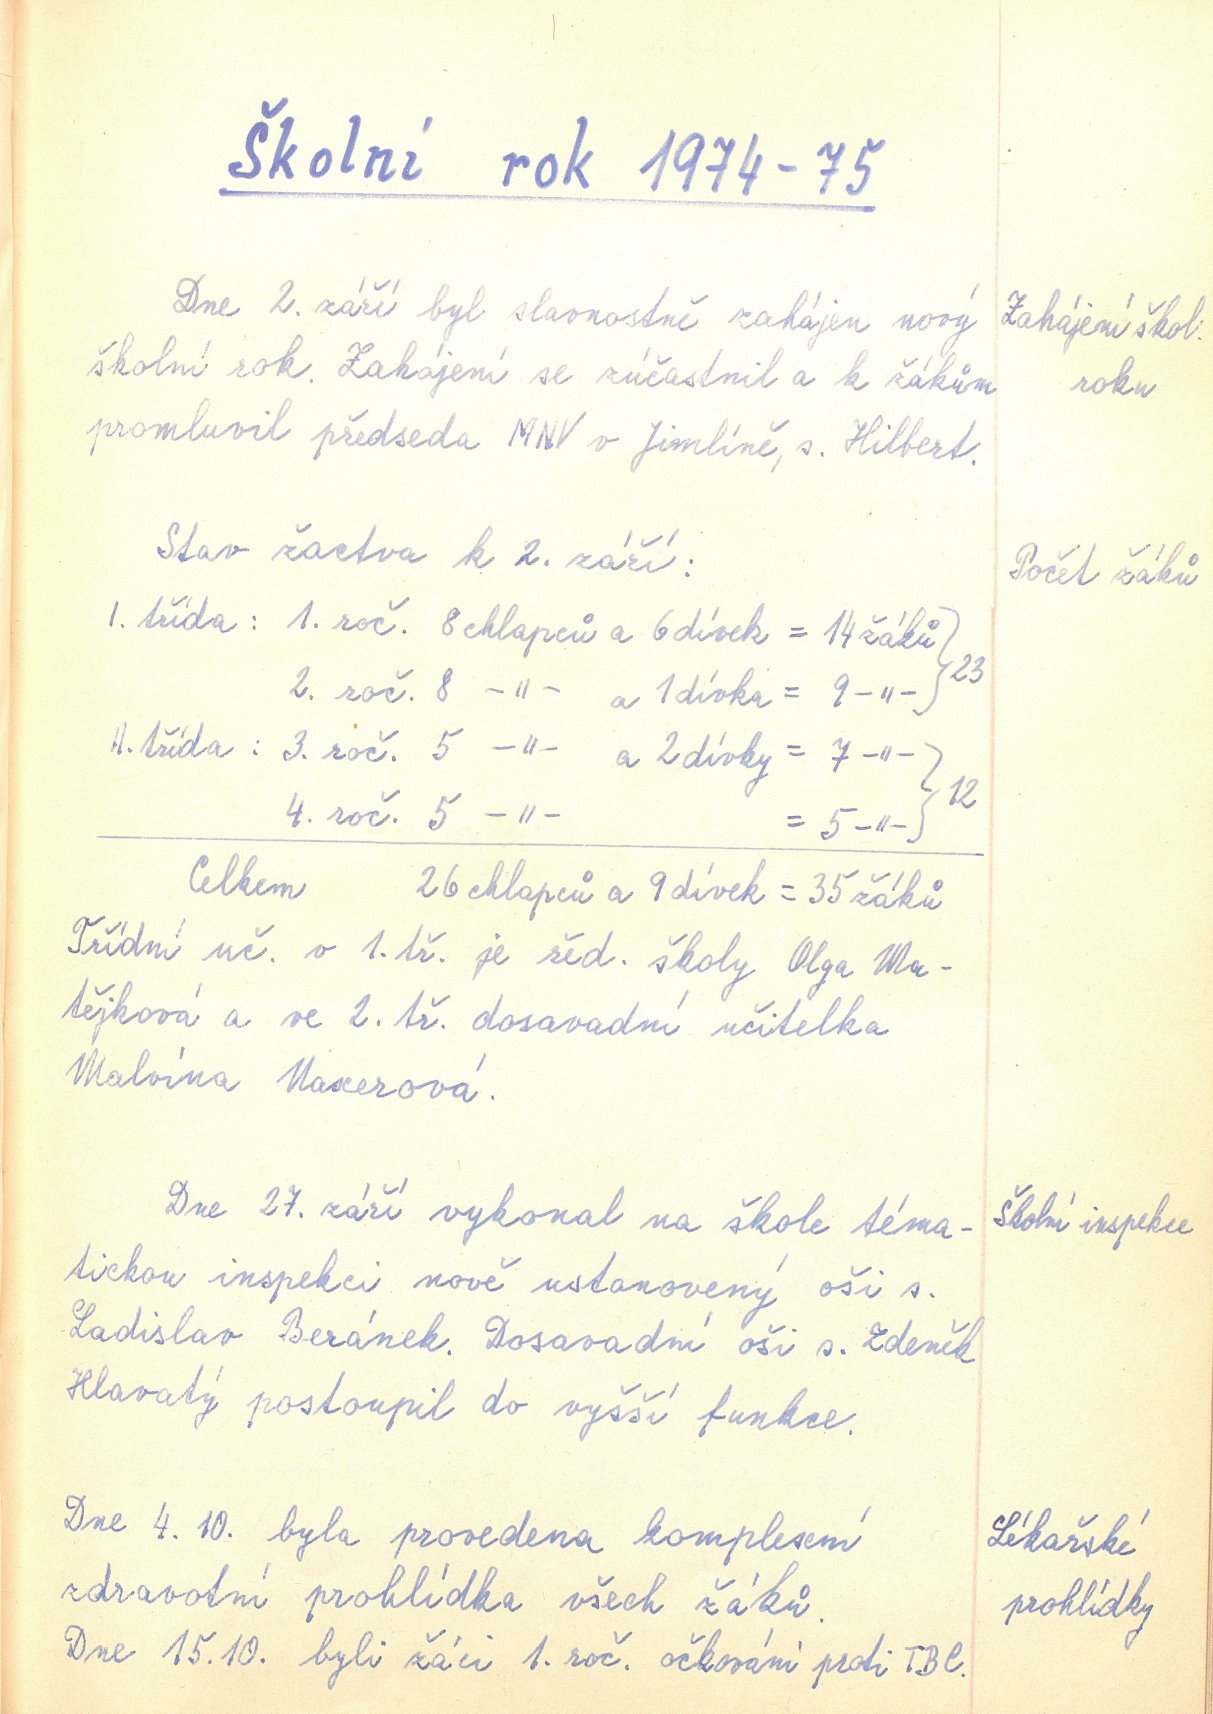 Školní rok 1974-75
Dne 2. září byl slavnostně zahájen nový
školní rok. Zahájení se zúčastnil a k žákům
promluvil předseda MNV v Jimlíně, s. Hilbert.
Zahájení škol.
roku
Stav žactva k 2. září:
Počet žáků
I. třída: 1. roč. 8 chlapců a 6 dívek = 14 žáků
2. roč. 8 -"- a 1 dívka = 9 -"- } 23
II. třída: 3. roč. 5 -"- a 2 dívky = 7 -"-
4. roč. 5 -"- = 5 -"- } 12
Celkem 26 chlapců a 9 dívek = 35 žáků
Třídní uč. v 1. tř. je řed. školy Olga Ma-
tějková a ve 2. tř. dosavadní učitelka
Malvína Naxerová.
Dne 27. září vykonal na škole téma-
tickou inspekci nově ustanovený oši s.
Ladislav Beránek. Dosavadní oši s. Zdeněk
Hlavatý postoupil do vyšší funkce.
Školní inspekce
Dne 4. 10. byla provedena komplexní
zdravotní prohlídka všech žáků.
Dne 15. 10. byli žáci 1. roč. očkováni proti TBC.
Lékařské
prohlídky